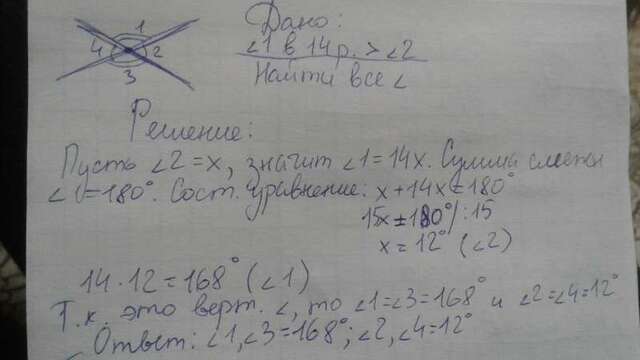 1
4 2
3
Дано:
∠1 в 14 р. > ∠2
Найти все ∠
Решение:
Пусть ∠2 = x, значит ∠1 = 14x. Сумма
∠ = 180°. Сост. уравнение: x + 14x = 180°
15x = 180° /:15
x = 12° (∠2)
14 · 12 = 168° (∠1)
Т.к. это верт. ∠, то ∠1 = ∠3 = 168° и ∠2 = ∠4 = 12°
Ответ: ∠1, ∠3 = 168°; ∠2, ∠4 = 12°